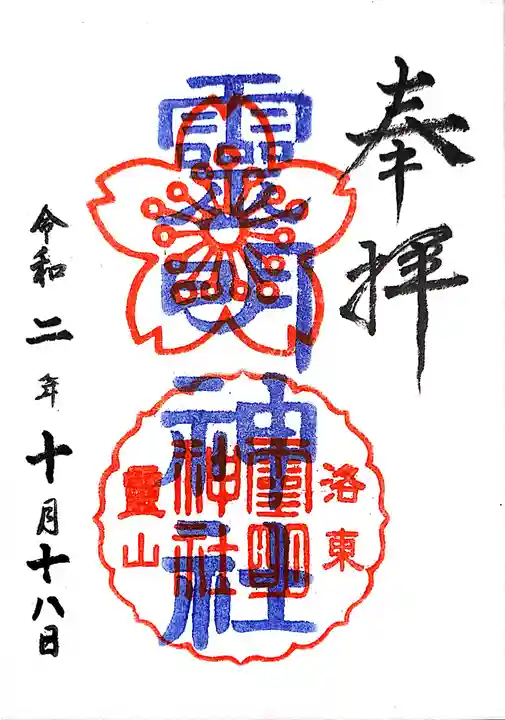 奉拝
靈明神社
洛東
靈明
神社
靈山
令和二年十月十八日